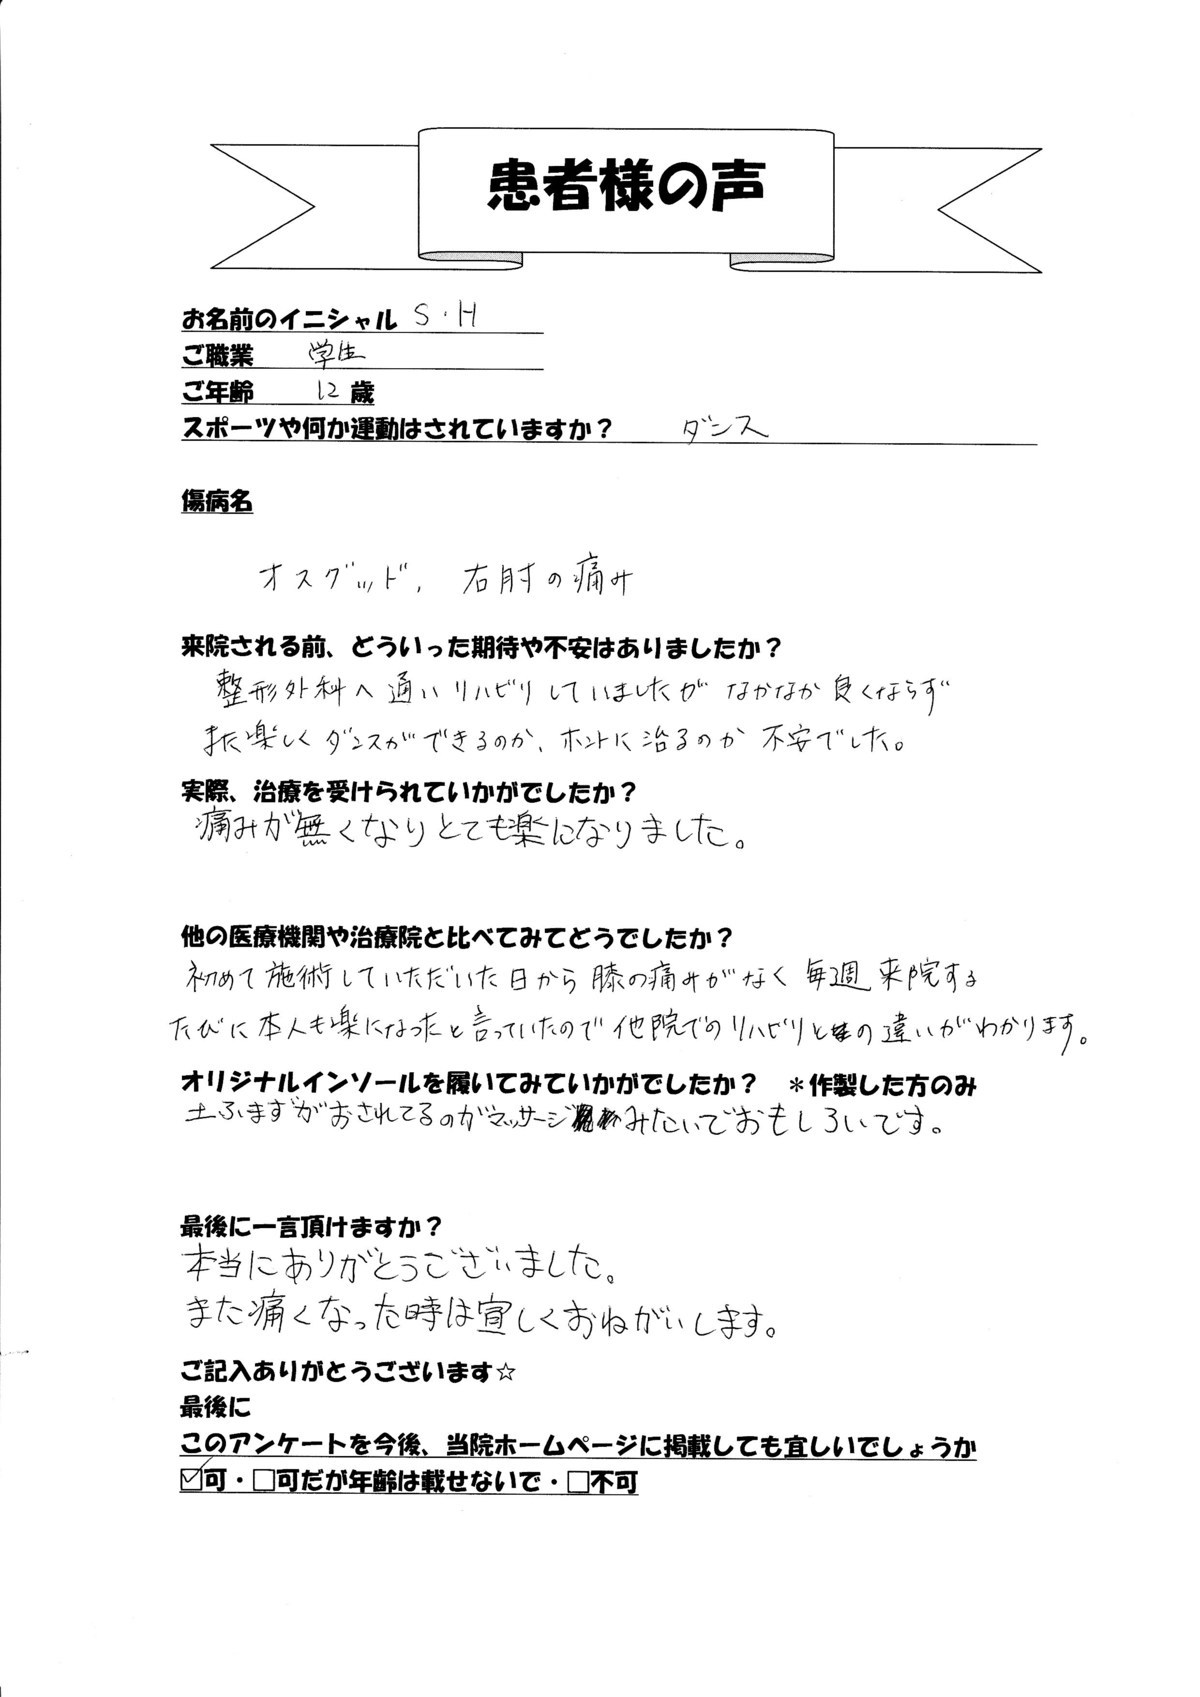 患者様の声
お名前のイニシャル S・H
ご職業 学生
ご年齢 12 歳
スポーツや何か運動はされていますか？ ダンス
傷病名
オスグッド, 右肘の痛み
来院される前、どういった期待や不安はありましたか？
整形外科へ通いリハビリしていましたがなかなか良くならず
また楽しくダンスができるのか、ホントに治るのか不安でした。
実際、治療を受けられていかがでしたか？
痛みが無くなりとても楽になりました。
他の医療機関や治療院と比べてみてどうでしたか？
初めて施術していただいた日から膝の痛みがなく毎週来院する
たびに本人も楽になったと言っていたので他院でのリハビリとの違いがわかります。
オリジナルインソールを履いてみていかがでしたか？ ＊作製した方のみ
土ふまずがおされてるのがマッサージみたいでおもしろいです。
最後に一言頂けますか？
本当にありがとうございました。
また痛くなった時は宜しくおねがいします。
ご記入ありがとうございます☆
最後に
このアンケートを今後、当院ホームページに掲載しても宜しいでしょうか
☑可・□可だが年齢は載せないで・□不可